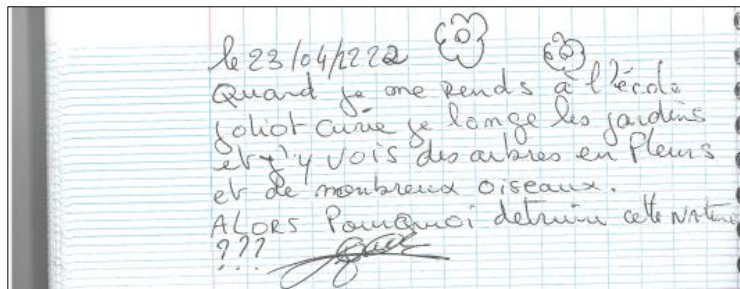 le 23/04/2222
Quand je me rends à l'école
Joliot Curie je longe les jardins
et j'y vois des arbres en Fleurs
et de nombreux oiseaux.
ALORS Pourquoi detruire cette NATure
???